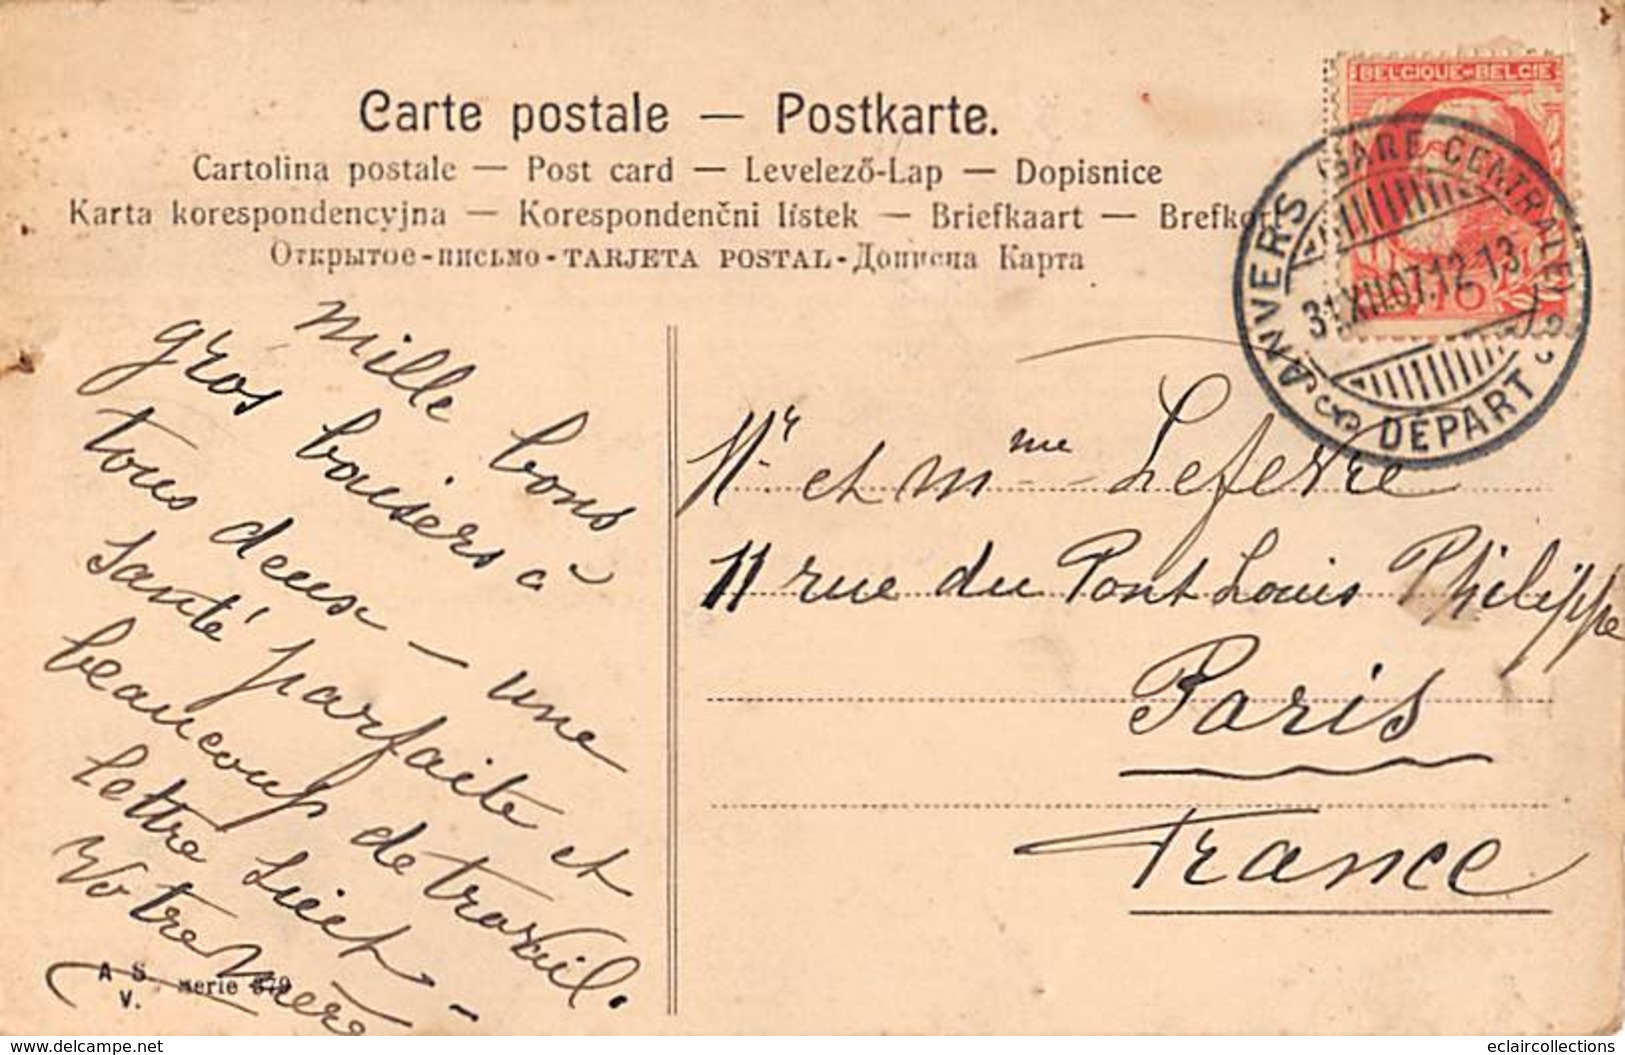 Carte postale — Postkarte.
Cartolina postale — Post card — Levelező-Lap — Dopisnice
Karta korespondencyjna — Korespondenčni lístek — Briefkaart — Brefkort
Открытое-письмо-TARJETA POSTAL-Дописна Карта
BELGIQUE-BELGIE
10
ANVERS (GARE CENTRALE)
31 XII 07.12-13
DÉPART
mille bons
gros baisers à
tous deux — une
santé parfaite et
beaucoup de travail.
lettre suit —
Votre mère
Mr et mme Lefevre
11 rue du Pont Louis Philippe
Paris
France
A S. serie 379
V.
www.delcampe.net
eclaircollections